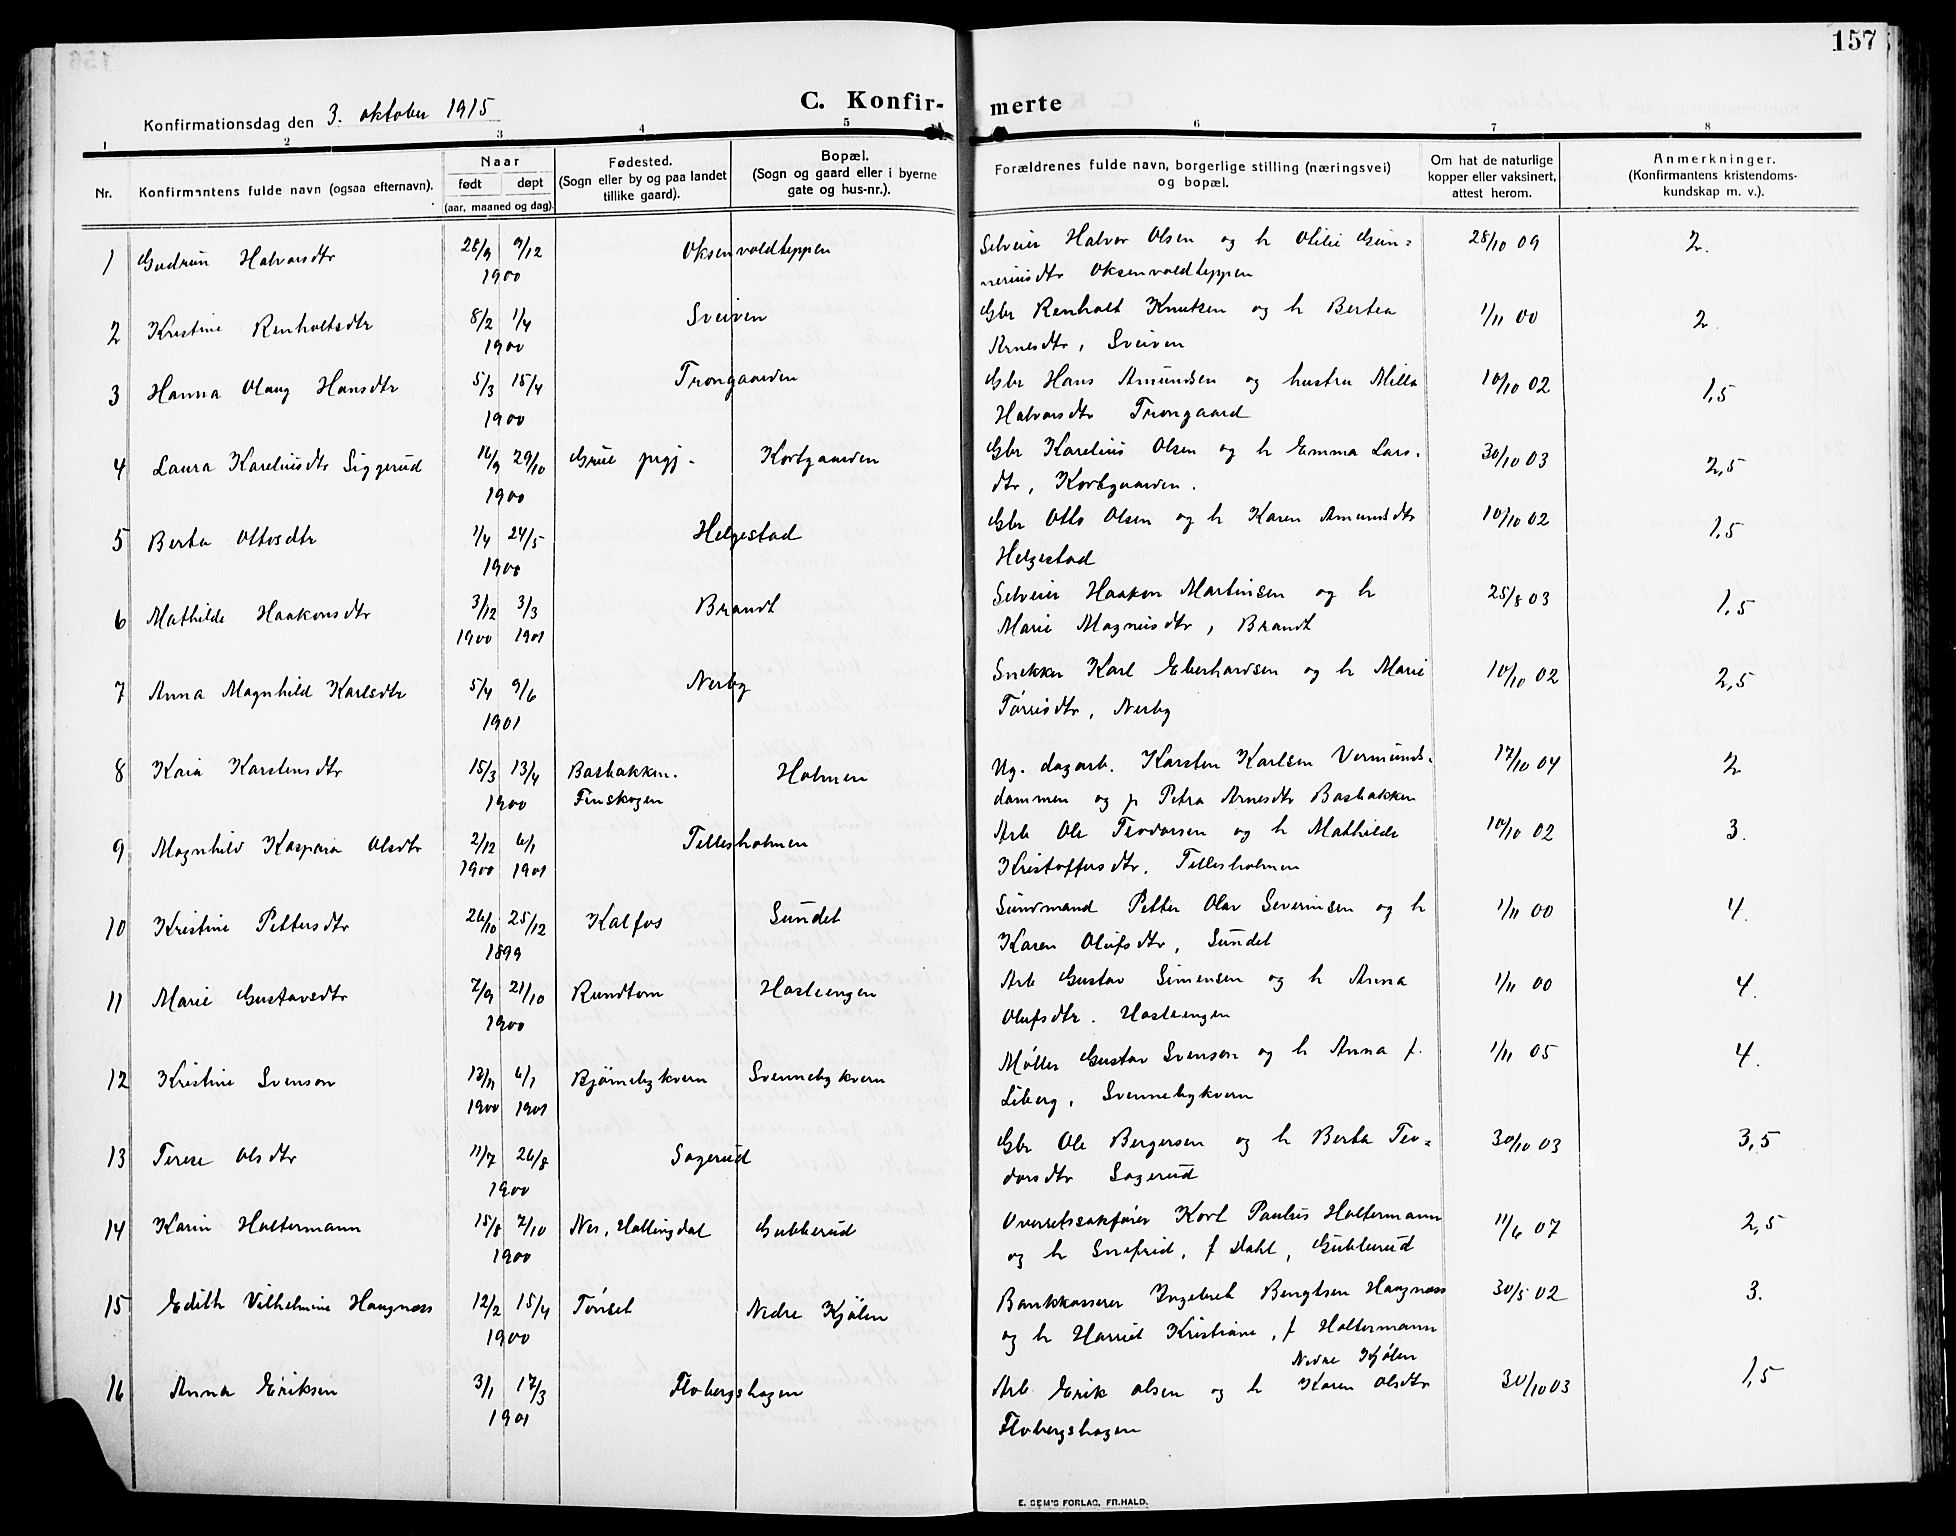 157
Konfirmationsdag den 3. oktober 1915
C. Konfir- merte
1 2 3 4 5 6 7 8
Nr. Konfirmantens fulde navn (ogsaa efternavn).
Naar
født døpt
(aar, maaned og dag).
Fødested.
(Sogn eller by og paa landet
tillike gaard).
Bopæl.
(Sogn og gaard eller i byerne
gate og hus-nr.).
Forældrenes fulde navn, borgerlige stilling (næringsvei)
og bopæl.
Om hat de naturlige
kopper eller vaksinert,
attest herom.
Anmerkninger.
(Konfirmantens kristendoms-
kundskap m. v.).
1 Gudrun Halvorsdtr 28/9 9/12 Oksenvoldteppen Selveier Halvor Olsen og h Otilie Gun- 28/10 09 2.
1900 neriusdtr Oksenvoldteppen
2 Kristine Renholtsdtr 8/2 1/4 Sveiven Gbr Renholt Knutsen og h Bertea 1/11 00 2.
1900 Arnesdtr, Sveiven
3 Hanna Olaug Hansdtr 5/3 15/4 Trongaarden Gbr Hans Amundsen og hustru Milla 10/10 02 1,5
1900 Halvorsdtr Trongaard
4 Laura Kareliusdtr Siggerud 16/9 29/10 Grue prgj. Kortgaarden Gbr Karelius Olsen og h Emma Lars- 30/10 03 2,5
1900 dtr, Kortgaarden.
5 Berta Ottosdtr 1/4 24/5 Helgestad Gbr Otto Olsen og h Karen Amundsdtr 10/10 02 1,5
1900 Helgestad
6 Mathilde Haakonsdtr 3/12 3/3 Brandt Selveier Haakon Martinsen og h 25/8 03 1,5
1900 1901 Marie Magnusdtr, Brandt
7 Anna Magnhild Karlsdtr 5/4 9/6 Nerby Snekker Karl Eberhardsen og h Marie 10/10 02 2,5
1901 Tørrisdtr, Nerby
8 Kaia Karstensdtr 15/3 13/4 Basbakken. Holmen Ug. dagarb. Karsten Karlsen Vermunds- 17/10 04 2
1900 Finskogen dammen og p Petra Arnesdtr Basbakken
9 Magnhild Kaspara Olsdtr 2/12 6/1 Tellesholmen Arb Ole Teodorsen og h Mathilde 10/10 02 3.
1900 1901 Kristoffersdtr. Tellesholmen
10 Kristine Pettersdtr 26/10 25/12 Kalfos Sundet Sundmand Petter Olav Severinsen og h 1/11 00 4.
1899 Karen Olufsdtr, Sundet
11 Marie Gustavsdtr 7/9 21/10 Rundtom Hasleengen Arb Gustav Simensen og h Anna 1/11 00 4.
1900 Olufsdtr. Hasleengen
12 Kristine Svenson 13/11 6/1 Bjørnebykvern Svennebykvern Møller Gustav Svenson og h Anna f. 1/11 05 4.
1900 1901 Liberg, Svennebykvern
13 Terese Olsdtr 11/7 26/8 Sagerud Gbr Ole Bergersen og h Berta Teo- 30/10 03 3,5
1900 dorsdtr Sagerud
14 Karin Holtermann 15/8 7/10 Nes, Hallingdal Gubberud Overretssakfører Karl Paulus Holtermann 11/6 07 2,5
1900 og h Snefrid, f Dahl, Gubberud
15 Edith Vilhelmine Haugnæss 12/2 15/4 Tønset Nedre Kjølen Bankkasserer Ingebret Bengtsen Haagnæss 30/5 02 3.
1900 og h Harriet Kristiane, f Holtermann
Nedre Kjølen
16 Anna Eriksen 3/1 17/3 Flobergshagen Arb Erik Olsen og h Karen Olsdtr 30/10 03 1,5
1901 Flobergshagen
E. SEM'S FORLAG, FR.HALD.